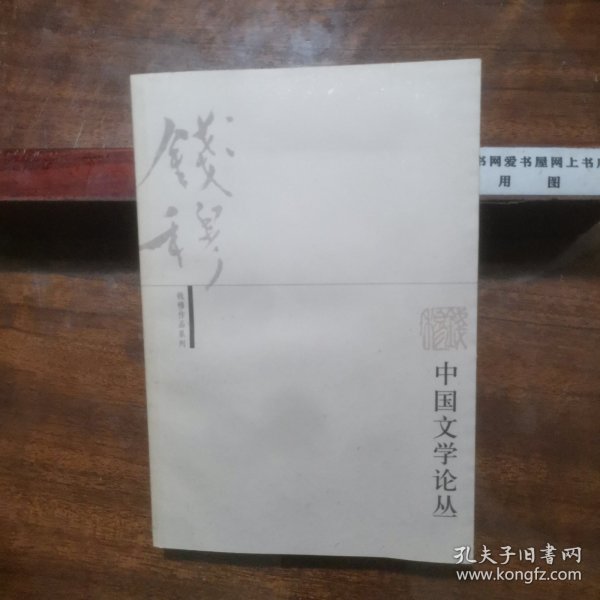 錢穆
钱穆作品系列
中国文学论丛
书网爱书屋网上书店
用 图
孔夫子旧書网
www.kongfz.com